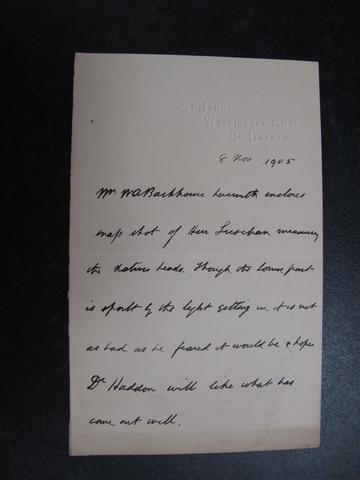 St. John's,
Wolsingham R.S.O.
Co. Durham.
8 Nov 1905
Mr WA Backhouse herewith encloses
snap shot of Herr Luschan measuring
the natives heads. Though the lower part
is spoilt by the light getting in it is not
as bad as he feared it would be & hopes
Dr Haddon will like what has
come out well.